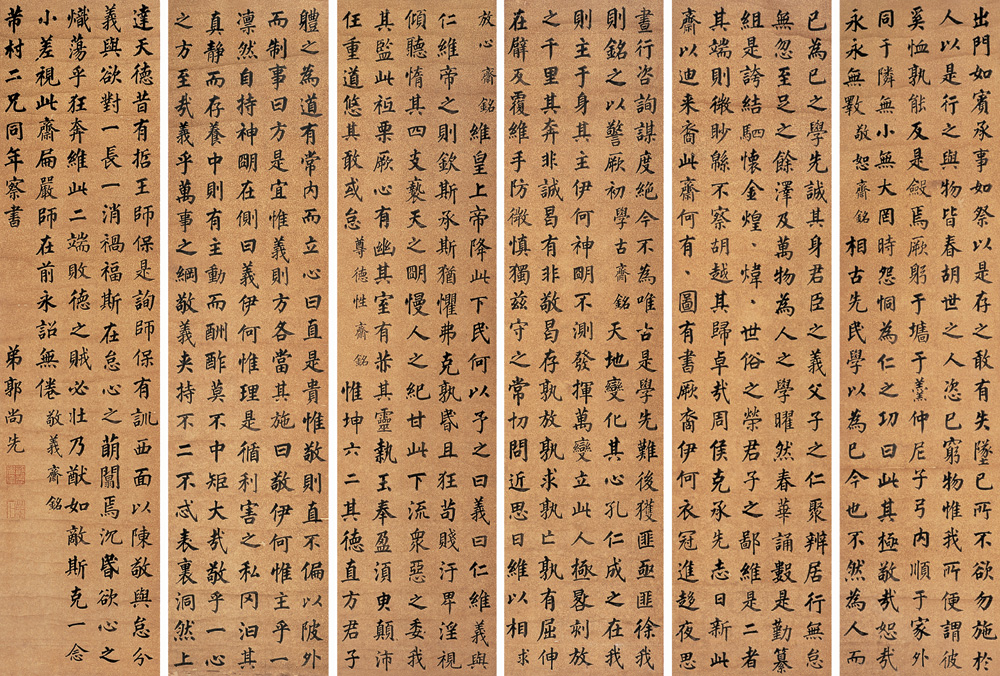 出門如賓承事如祭以是存之敢有失墜己所不欲勿施於
人以是行之與物皆春胡世之人恣己窮物惟我所便謂彼
奚恤孰能反是斂焉厥躬于墻于羹仲尼子弓內順于家外
同于隣無小無大罔時怨恫為仁之功曰此其極敬哉恕哉
永永無斁敬恕齋銘相古先民學以為己今也不然為人而
已為己之學先誠其身君臣之義父子之仁聚辨居行無怠
無忽至足之餘澤及萬物為人之學曜然春華誦數是勤纂
組是誇結駟懷金煌、煒、世俗之榮君子之鄙維是二者
其端則微眇緜不察胡越其歸卓哉周侯克承先志日新此
齋以迪来裔此齋何有、圖有書厥裔伊何衣冠進趨夜思
晝行咨詢謀度絕今不為唯古是學先難後獲匪亟匪徐我
則銘之以警厥初學古齋銘天地變化其心孔仁成之在我
則主于身其主伊何神明不測發揮萬變立此人極晷刻放
之千里其奔非誠曷有非敬曷存孰放孰求孰亡孰有屈伸
在臂反覆維手防微慎獨茲守之常切問近思曰維以相求
放心齋銘維皇上帝降此下民何以予之曰義曰仁維義與
仁維帝之則欽斯承斯猶懼弗克孰昏且狂苟賤汙卑淫視
傾聽惰其四支褻天之明慢人之紀甘此下流衆惡之委我
其監此祗栗厥心有幽其室有赫其靈執玉奉盈須臾顛沛
任重道悠其敢或怠尊德性齋銘惟坤六二其德直方君子
體之為道有常內而立心曰直是貴惟敬則直不偏以陂外
而制事曰方是宜惟義則方各當其施曰敬伊何惟主乎一
凛然自持神明在側曰義伊何惟理是循利害之私罔汩其
真静而存養中則有主動而酬酢莫不中矩大哉敬乎一心
之方至哉義乎萬事之綱敬義夹持不二不忒表裏洞然上
達天德昔有哲王師保是詢師保有訓西面以陳敬與怠分
義與欲對一長一消禍福斯在怠心之萌闒焉沉昏欲心之
熾蕩乎狂奔維此二端敗德之賊必壯乃猷如敵斯克一念
小差視此齋扁嚴師在前永詔無倦敬義齋銘
芾村二兄同年察書 弟郭尚先